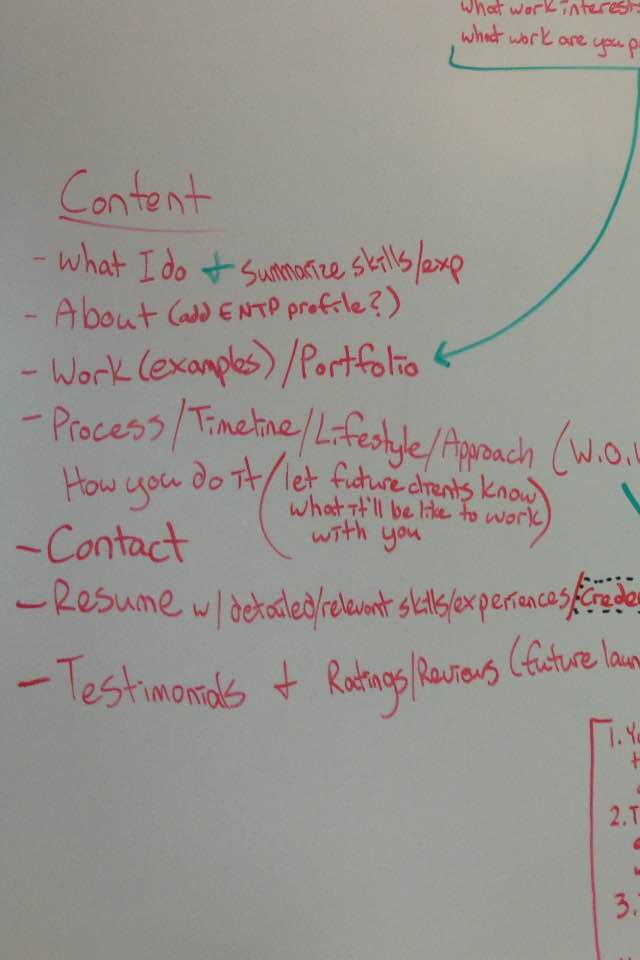 What work interests
what work are you
Content
- What I do + Summarize skills/exp
- About (add ENTP profile?)
- Work (examples) / Portfolio
- Process / Timeline / Lifestyle / Approach (W.O.
How you do it (let future clients know
what it'll be like to work
with you)
- Contact
- Resume w/ detailed/relevant skills/experiences/
- Testimonials + Ratings/Reviews (future
1.
2.
3.